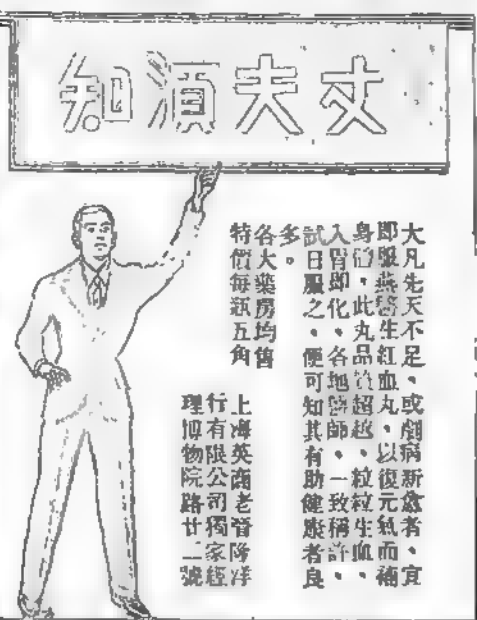 丈夫須知
大凡先天不足、或劇病新愈者、宜
即服燕醫生紅血丸、以復元氣而補
身體、此丸品質超越、粒粒生血、
入胃即化、各地醫師、一致稱許、
試日服之、便可知其有助健康者良
多。
各大藥房均售
特價每瓶五角
上海英商老晉隆洋
行有限公司獨家經
理博物院路廿二號